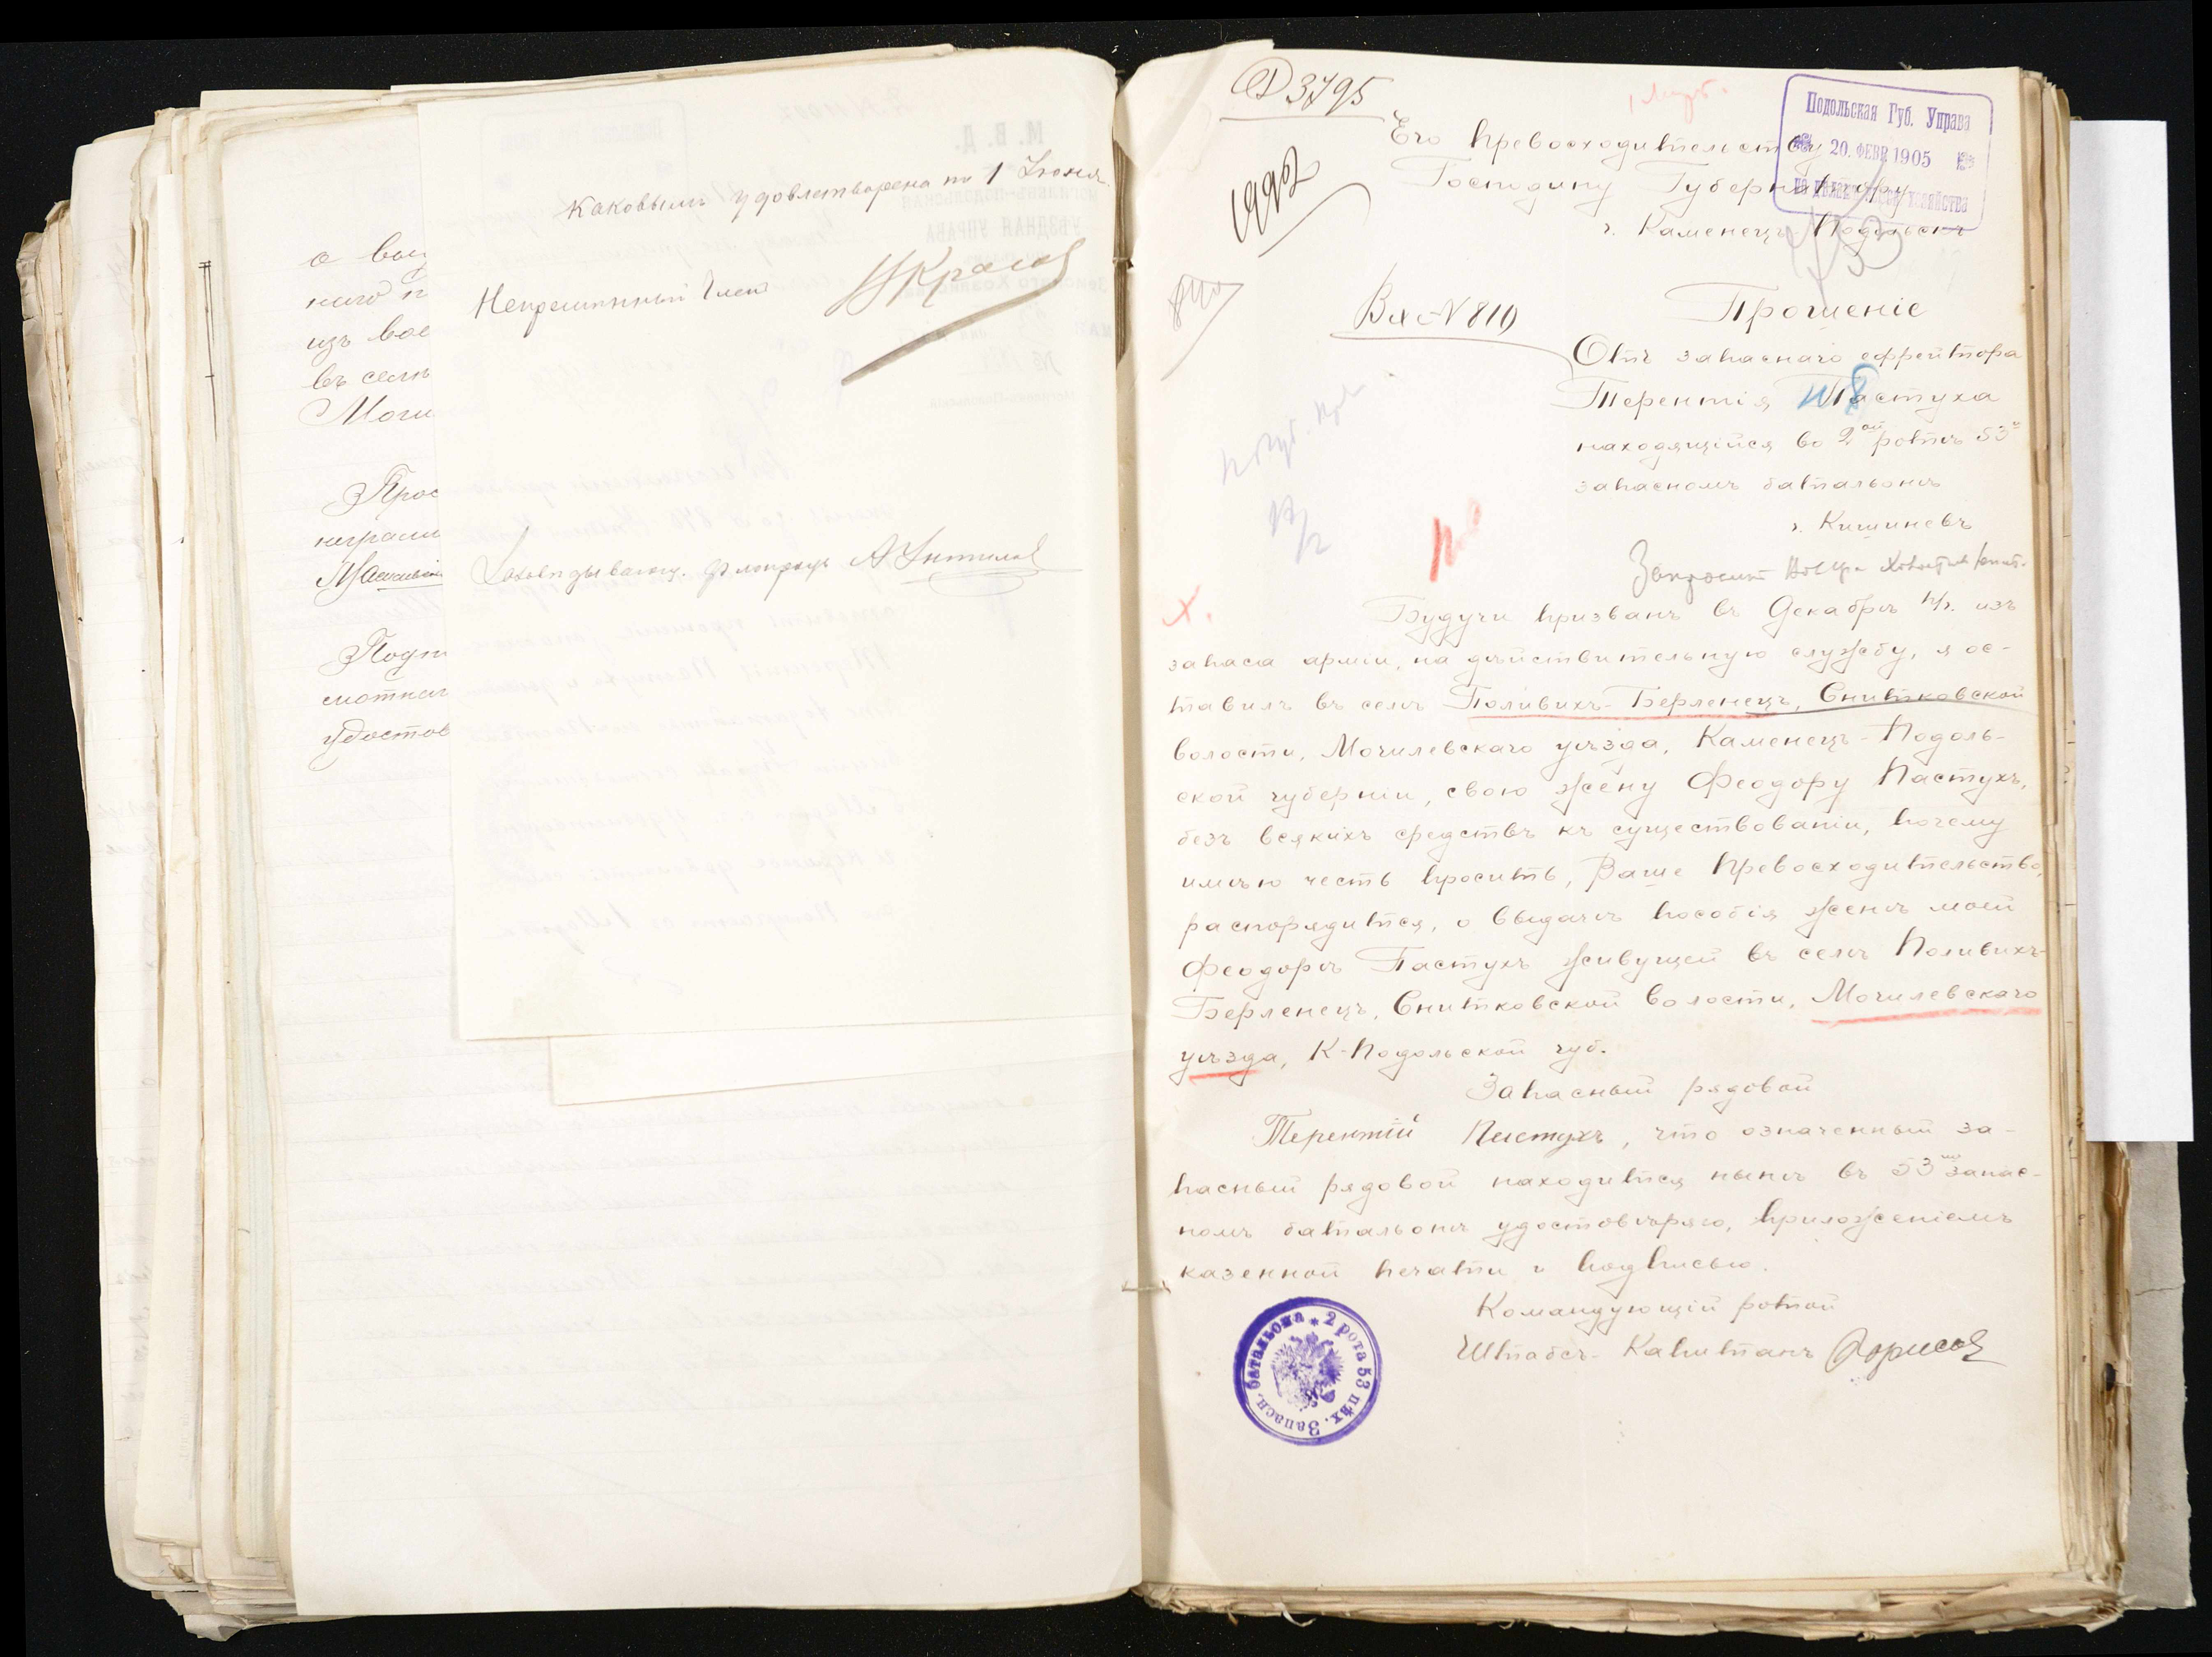 каковымъ удовлетворена по 1 Іюня
Непременный Членъ
а вои
ного п
изъ вое
въ селѣ
Моги
Прос
Подп
удостов
3795
Его Превосходительству
Господину Губернатору
г. Каменецъ-Подольскъ
Подольская Губ. Управа
20. ФЕВР 1905
по дѣламъ земск. хозяйства
Вх №810
Прошеніе
Отъ запаснаго ефрейтора
Терентія Пастуха
находящійся во 2ой ротѣ 53го
запасномъ баталіонѣ
г. Кишиневъ
Х.
Будучи призванъ въ Декабрѣ п/г. изъ
запаса арміи, на дѣйствительную службу, я ос-
тавилъ въ селѣ Поливихъ-Берленецъ, Снитковской
волости, Могилевскаго уѣзда, Каменецъ-Подоль-
ской губерніи, свою жену Феодору Пастухъ,
безъ всякихъ средствъ къ существованіи, почему
имѣю честь просить, Ваше Превосходительство,
распорядится, о выдачѣ пособія женѣ моей
Феодорѣ Пастухъ живущей въ селѣ Поливихъ-
Берленецъ, Снитковской волости, Могилевскаго
уѣзда, К-Подольской губ.
Запасный рядовой
Терентій Пастухъ, что означенный за-
пасный рядовой находится нынѣ въ 53мъ запас-
номъ баталіонѣ удостовѣряю, приложеніемъ
казенной печати и подписью.
Командующій ротой
Штабсъ-Капитанъ Борисов
2 рота 53 пѣх. Запасн. баталіона